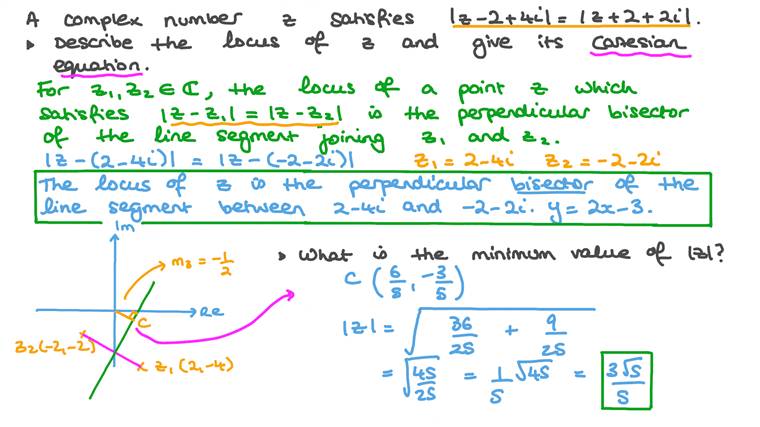 A complex number z satisfies |z-2+4i| = |z+2+2i|.
▸ Describe the locus of z and give its cartesian
equation.
For z₁, z₂ ∈ ℂ, the locus of a point z which
satisfies |z-z₁| = |z-z₂| is the perpendicular bisector
of the line segment joining z₁ and z₂.
|z-(2-4i)| = |z-(-2-2i)| z₁ = 2-4i z₂ = -2-2i
The locus of z is the perpendicular bisector of the
line segment between 2-4i and -2-2i. y = 2x-3.
Im
▸ What is the minimum value of |z|?
m₃ = -1/2
C (6/5, -3/5)
Re
C
|z| = √(36/25 + 9/25)
z₂(-2,-2)
z₁(2,-4)
= √(45/25) = 1/5 √45 = 3√5/5